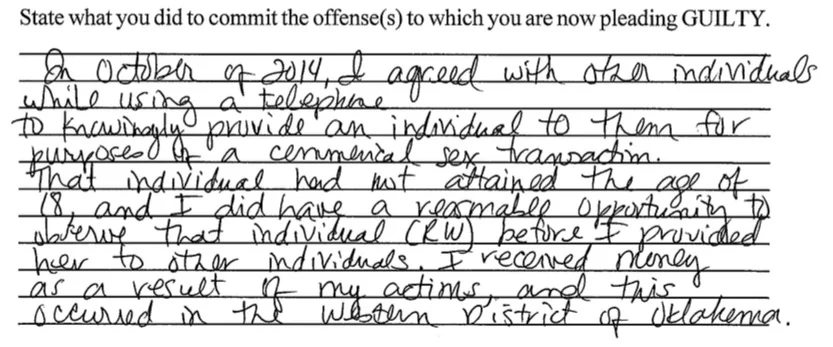 State what you did to commit the offense(s) to which you are now pleading GUILTY.
In October of 2014, I agreed with other individuals
while using a telephone
to knowingly provide an individual to them for
purposes of a commercial sex transaction.
That individual had not attained the age of
18, and I did have a reasonable opportunity to
observe that individual (RW) before I provided
her to other individuals. I received money
as a result of my actions, and this
occurred in the Western District of Oklahoma.